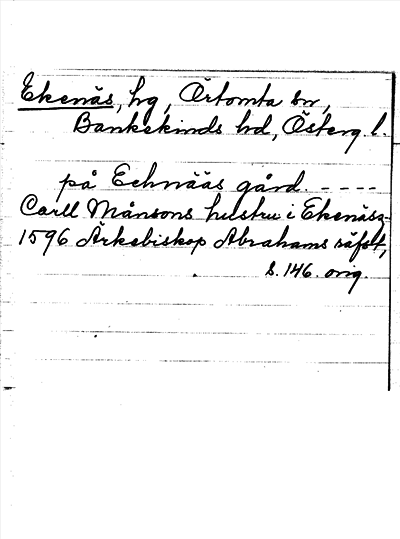 Ekenäs, hg, Örtomta sn,
Bankekinds hd, Österg. l.
på Echnääs gård. ----
Carll Månsons hustru i Ekenäsz
1596 Ärkebiskop Abrahams räfst,
s. 146. orig.